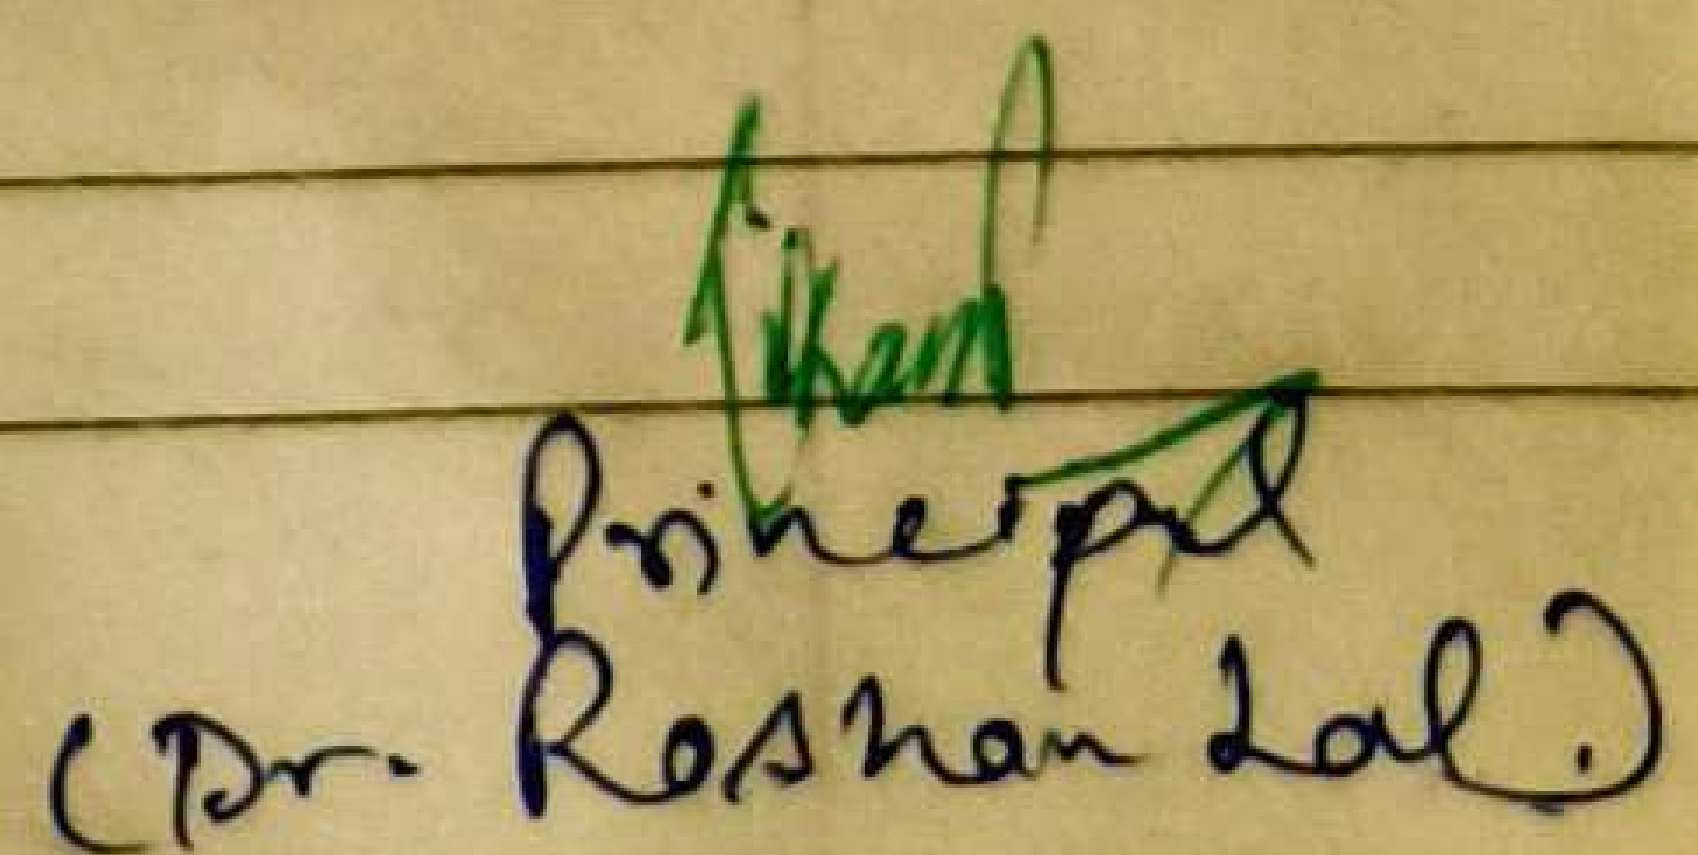 Principal
(Dr. Roshan Lal.)